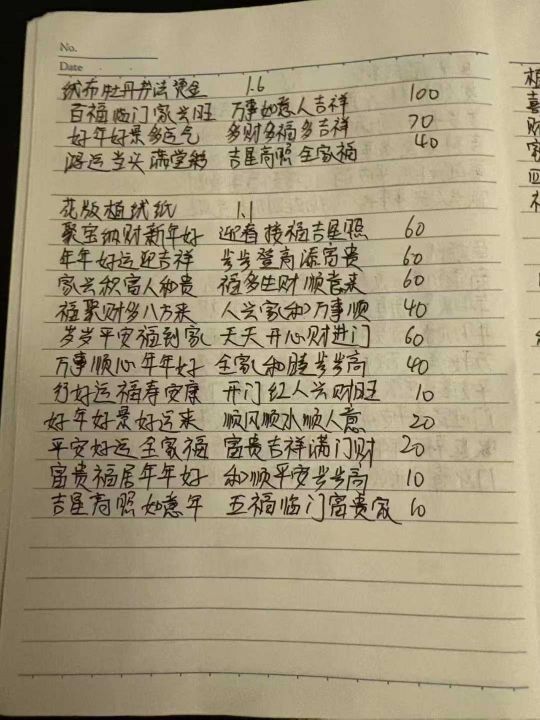 No.
Date
绒布牡丹书法烫金 1.6
百福临门家兴旺 万事如意人吉祥 100
好年好景多运气 多财多福多吉祥 70
鸿运当头满堂彩 吉星高照全家福 40
花版植绒纸 1.1
聚宝纳财新年好 迎春接福吉星照 60
年年好运迎吉祥 步步登高添富贵 60
家兴积富人和贵 福多生财顺意来 60
福聚财多八方来 人兴家和万事顺 40
岁岁平安福到家 天天开心财进门 60
万事顺心年年好 全家和睦步步高 40
行好运福寿安康 开门红人兴财旺 10
好年好景好运来 顺风顺水顺人意 20
平安好运全家福 富贵吉祥满门财 20
富贵福居年年好 和顺平安步步高 10
吉星高照如意年 五福临门富贵家 60
喜
财
家
四